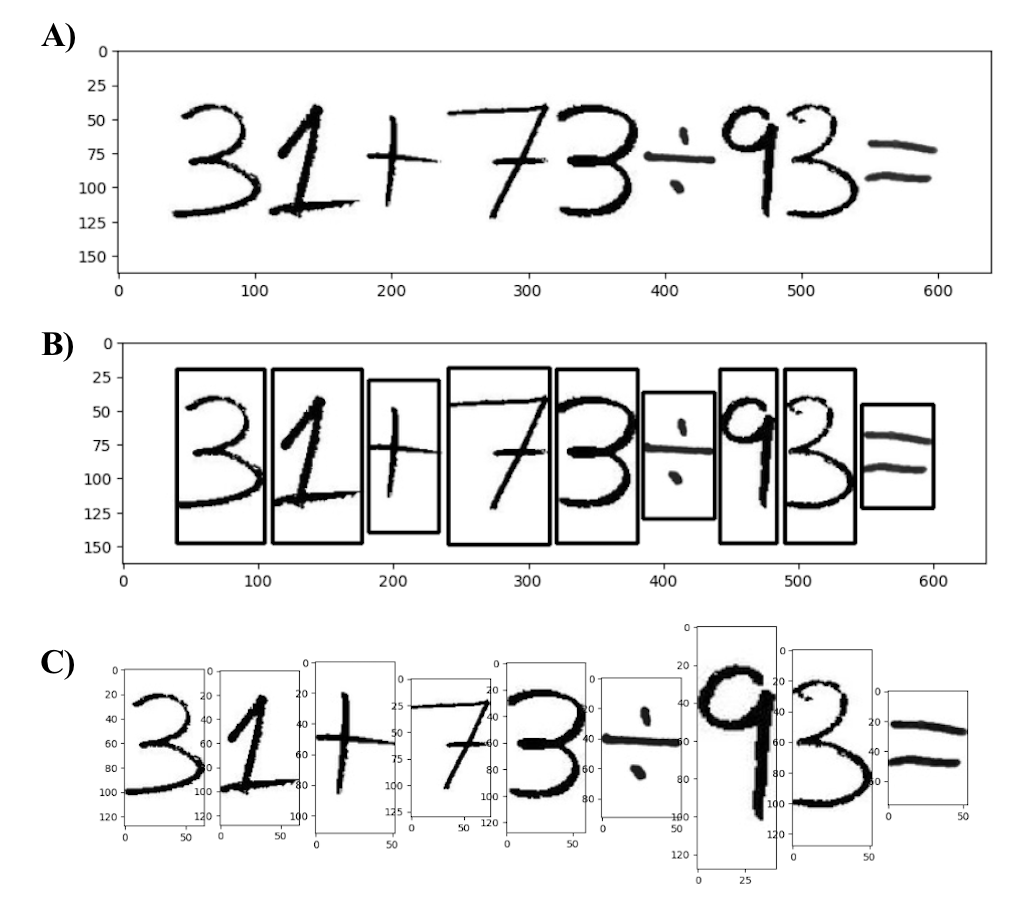 A)
0
25
50
75
100
125
150
31+73÷93=
0 100 200 300 400 500 600
B)
0
25
50
75
100
125
150
31+73÷93=
0 100 200 300 400 500 600
C)
0
20
40
60
80
100
120
3
0 50
0
20
40
60
80
100
120
1
0 50
0
20
40
60
80
100
+
0 50
0
25
50
75
100
125
7
0 50
0
20
40
60
80
100
120
3
0 50
0
20
40
60
80
÷
0 50
0
20
40
60
80
100
120
9
0 25
0
20
40
60
80
100
120
3
0 50
0
20
40
60
=
0 50